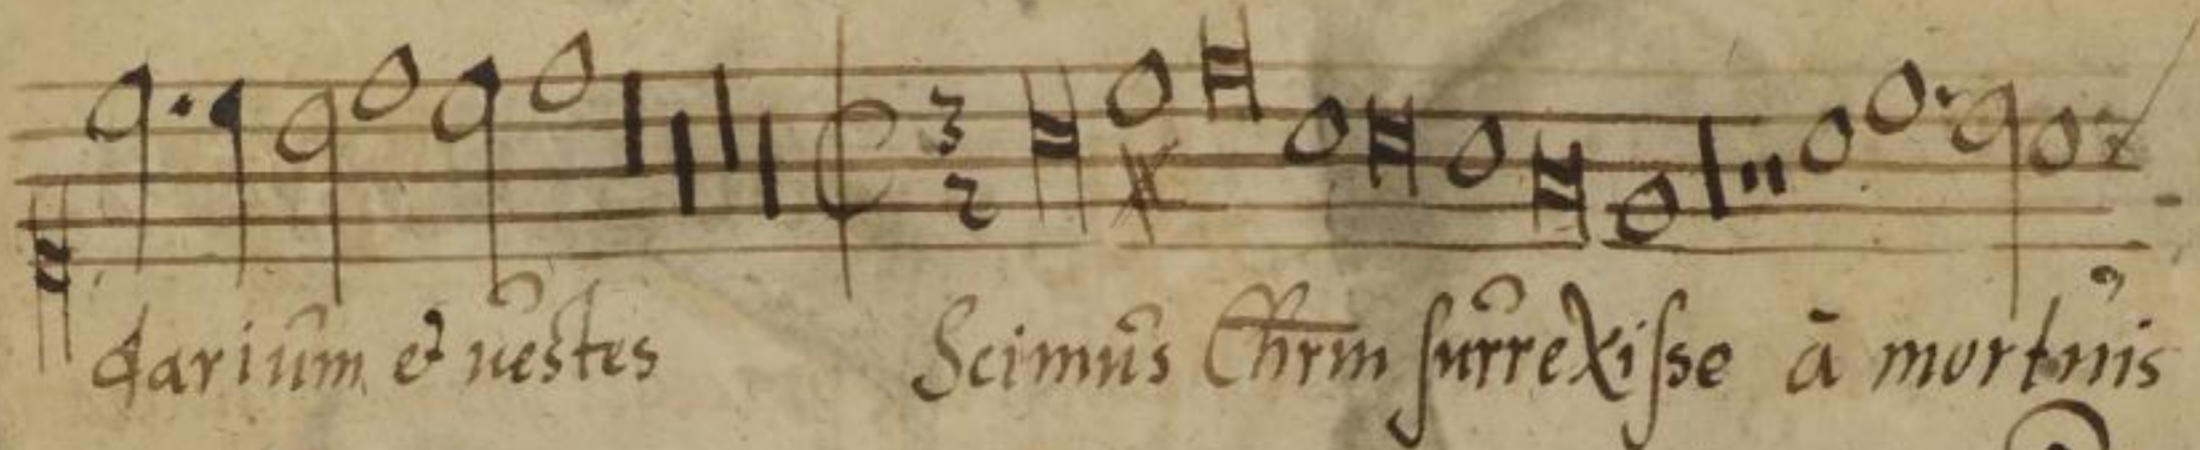 3
2
darium et uestes Scimus Chrm surrexisse a mortuis